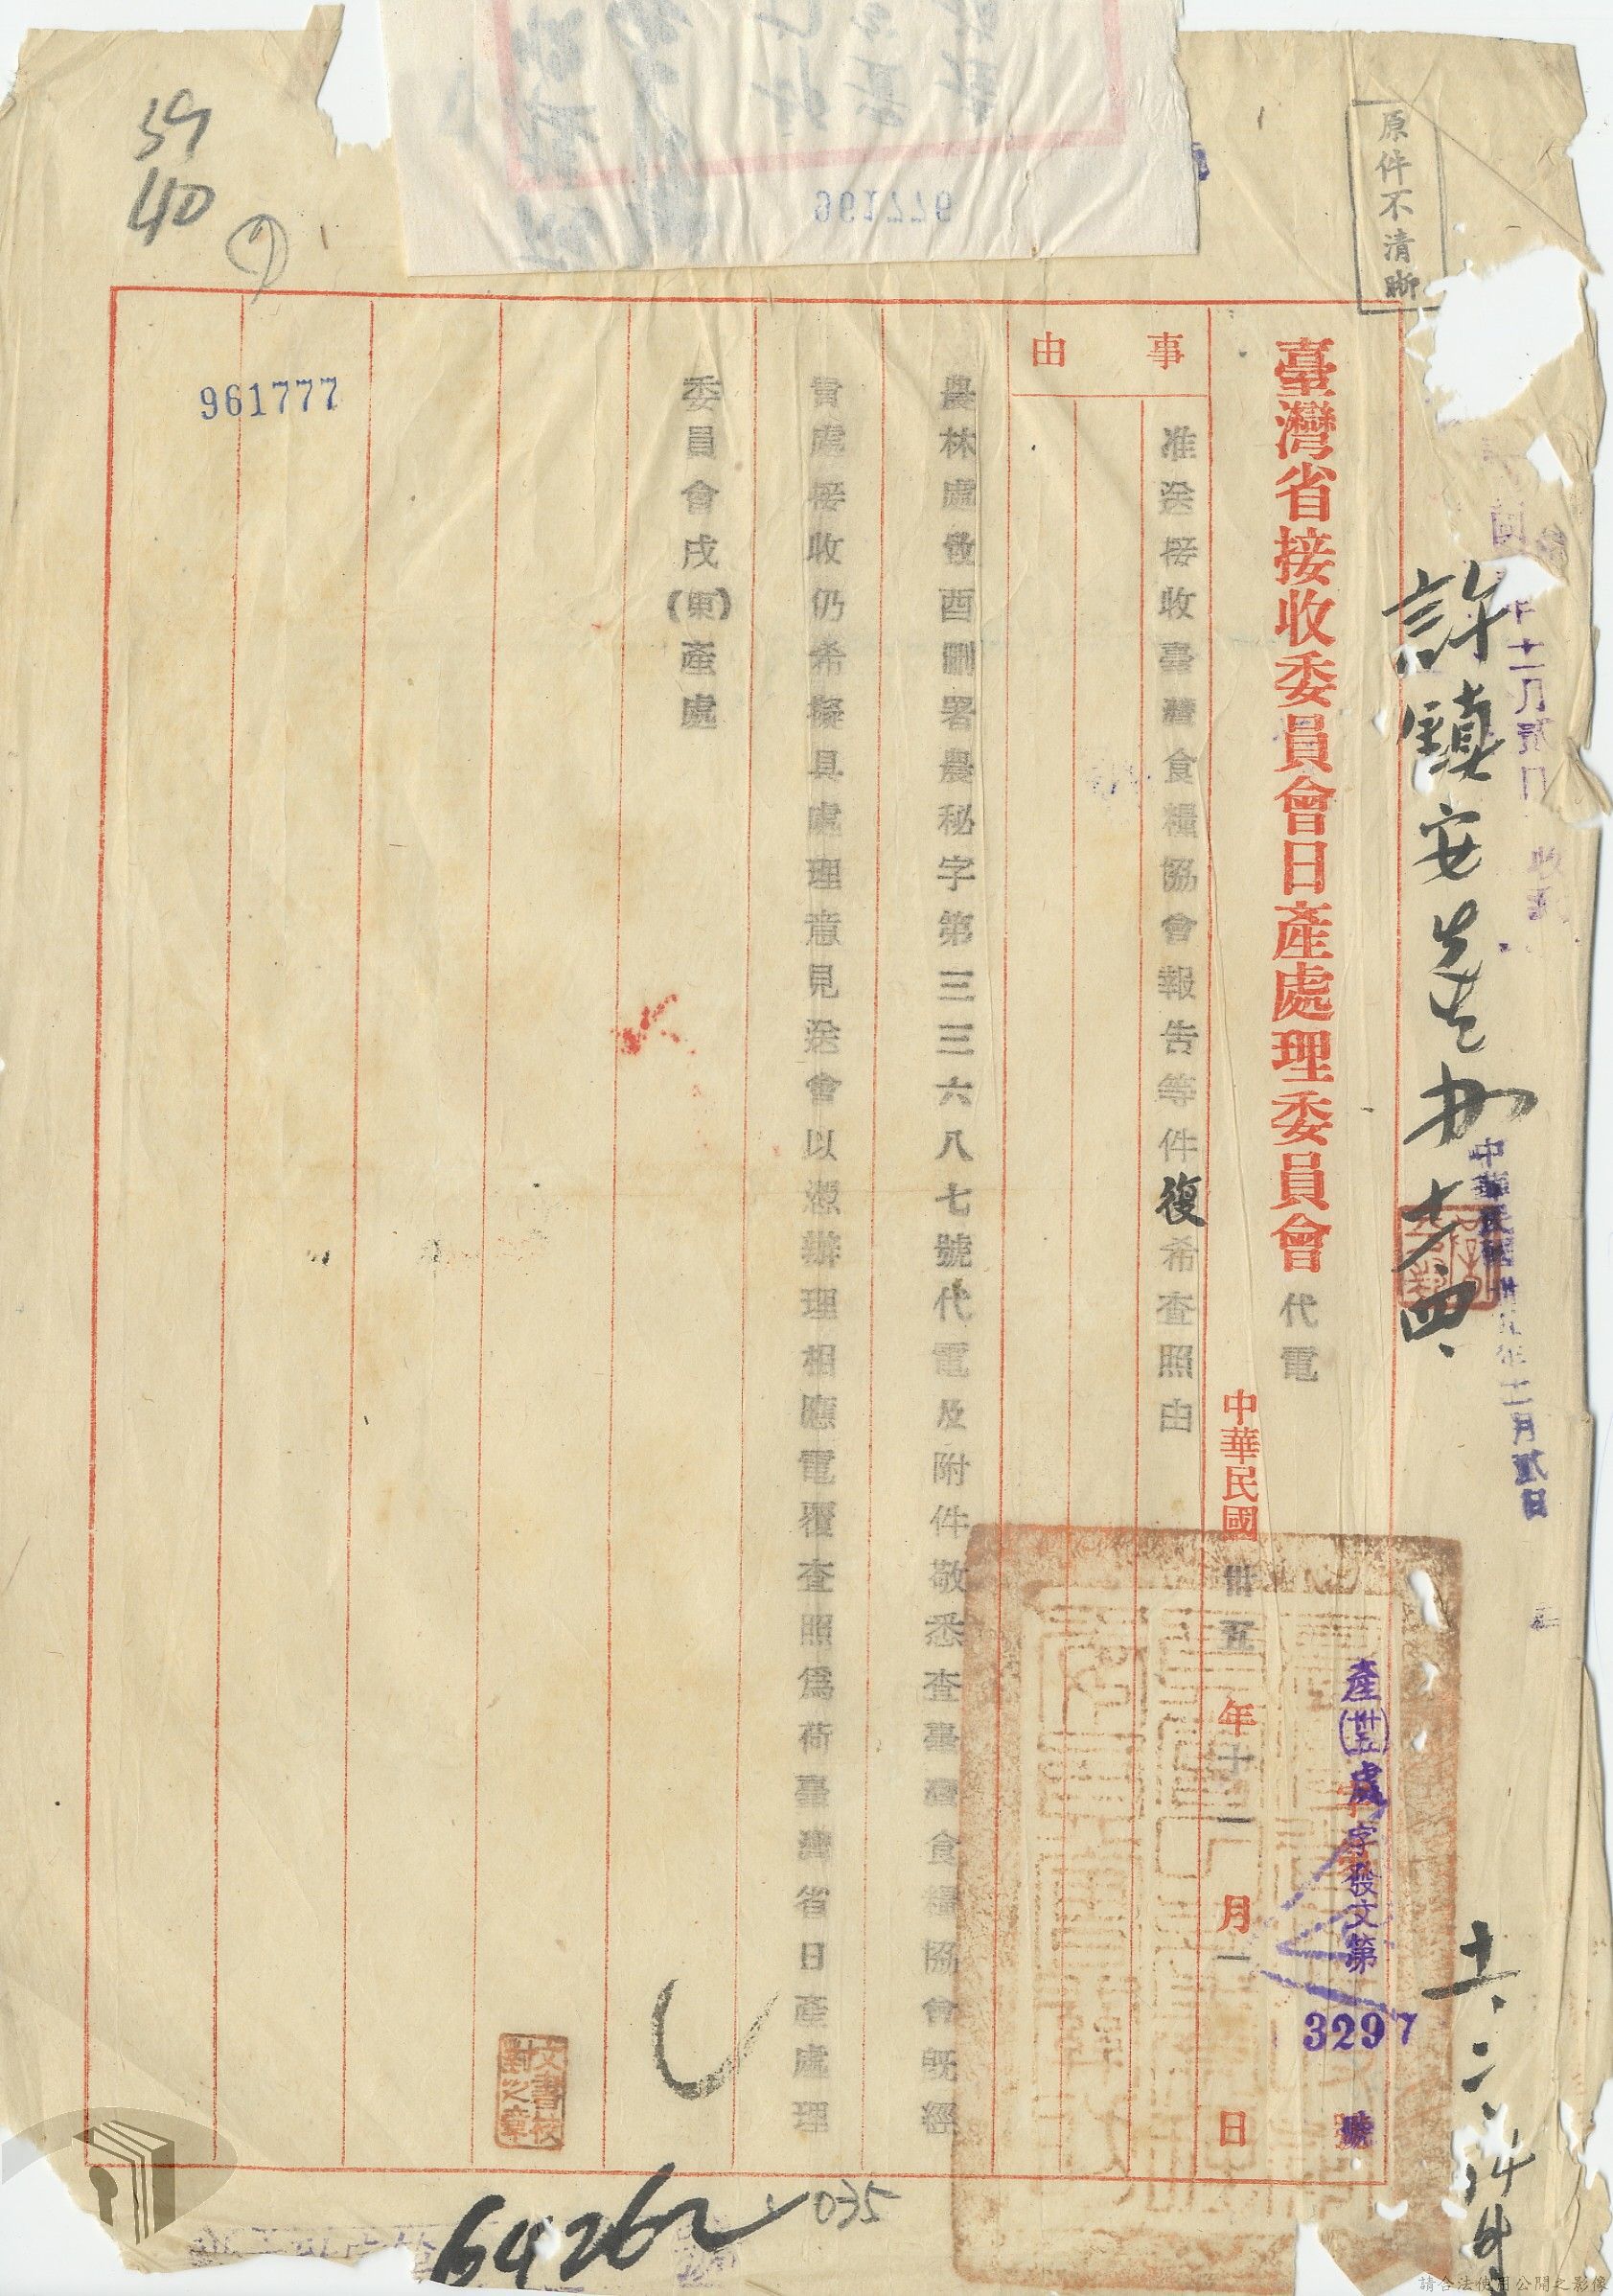 原件不清晰
臺灣省接收委員會日產處理委員會代電
中華民國卅五年十一月一日
產(卅五)處字發文第3297號
事由
准送接收臺灣食糧協會報告等件復希查照由
農林處致酉刪署農秘字第三三六八七號代電及附件敬悉查臺灣食糧協會既經
貴處接收仍希擬具處理意見送會以憑辦理相應電覆查照為荷臺灣省日產處理
委員會戌(東)產處
許鎮安先生办
十一、二、
中華民國卅五年十一月貳日
961777
977196
39
40
64262
035
請合法使用公開之影像